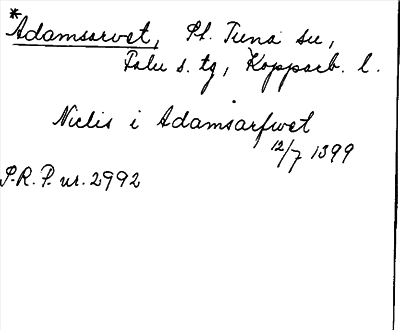 *Adamsarvet, St. Tuna sn,
Falu s. tg, Kopparb. l.
Niclis i Adamsarfwet
12/7 1399
P.R.P. nr. 2992